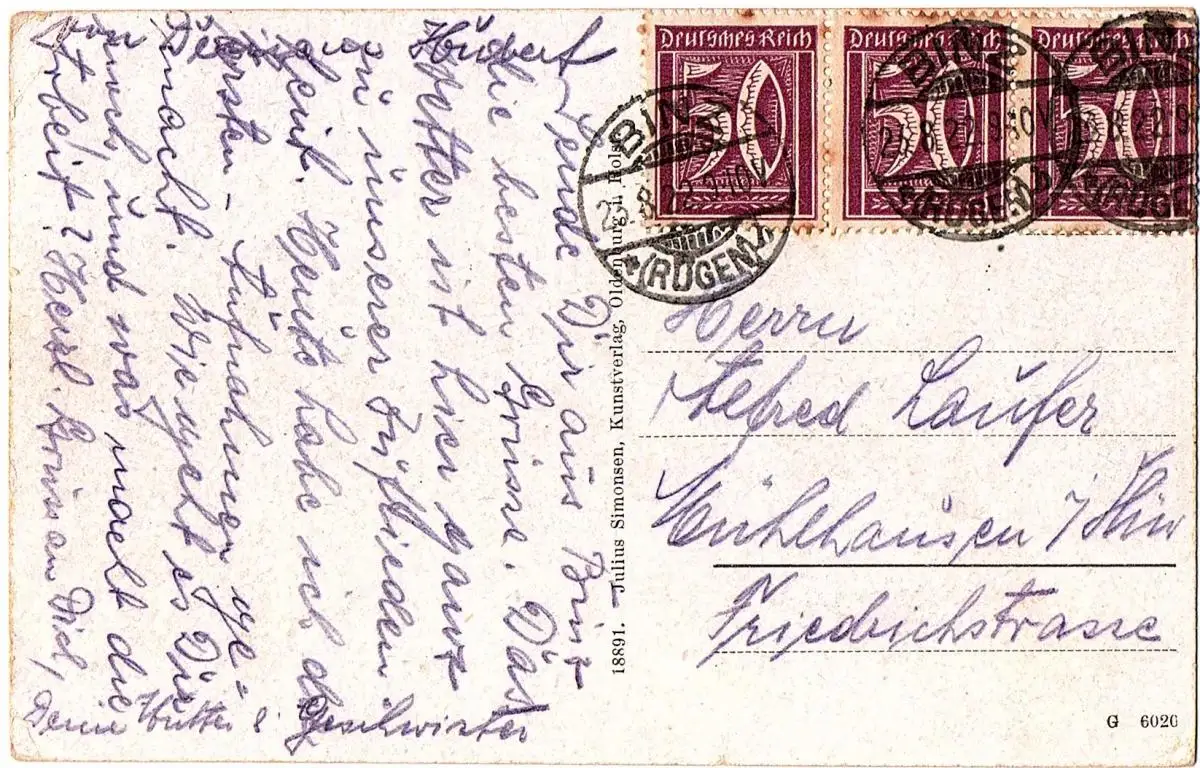 Deutsches Reich
50
Deutsches Reich
50
Deutsches Reich
50
BINZ
(RÜGEN)
BINZ
(RÜGEN)
BINZ
(RÜGEN)
Sende Dir aus Binz
die besten Grüsse. Das
Wetter ist hier ganz
zu unserer Zufrieden
heit. Heute habe ich d
ersten Aufnahmen ge-
macht. Wie geht es Dir
noch und was macht die
Arbeit? Herzl. Grüssen Dich,
Deine Mutter & Geschwister
Hubert
18891. Julius Simonsen, Kunstverlag, Oldenburg i. Holst
Herrn
Alfred Laufer
Mühlhausen i/Thür
Friedrichstrasse
G 6020